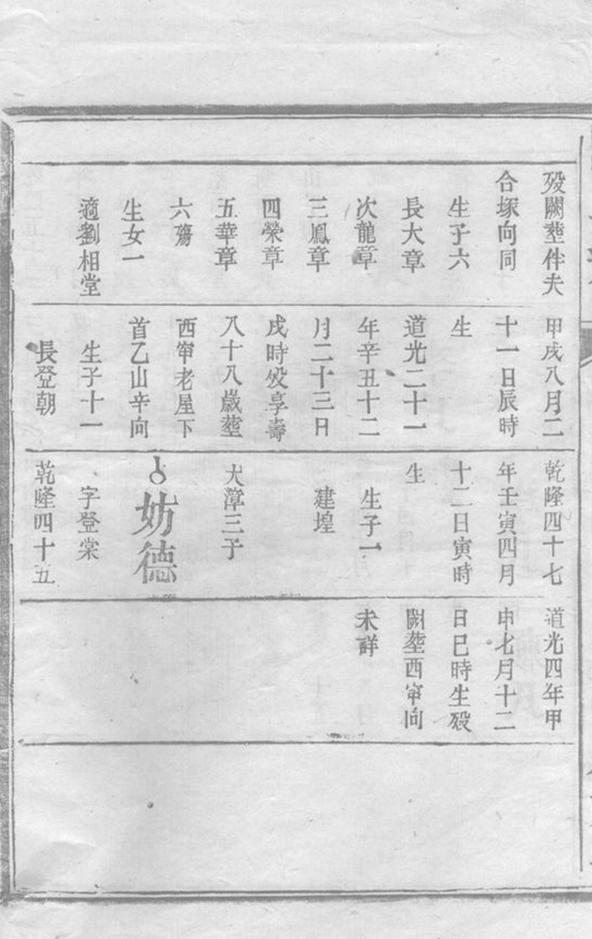 歿闕塟伴夫
合塚向同
生子六
長大章
次龍章
三鳳章
四榮章
五華章
六殤
生女一
適劉相堂
甲戌八月二
十一日辰時
生
道光二十一
年辛丑十二
月二十三日
戌時歿享壽
八十八歲塟
西窜老屋下
首乙山辛向
生子十一
長登朝
乾隆四十七
年壬寅四月
十二日寅時
生
生子一
建煌
大漳三子
妨德
字登棠
乾隆四十五
道光四年甲
申七月十二
日巳時生歿
闕塟西窜向
未詳